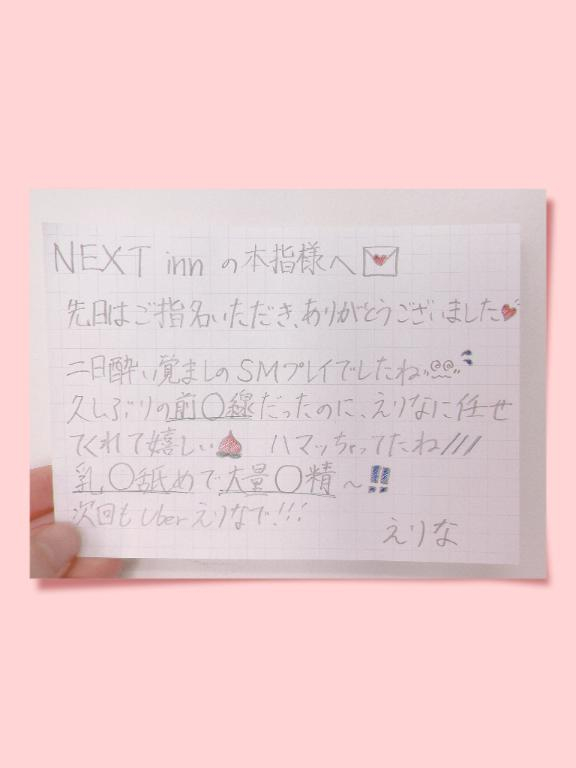 NEXT innの本指様へ
先日はご指名いただき、ありがとうございました
二日酔い覚ましのSMプレイでしたね
久しぶりの前〇線だったのに、えりなに任せ
てくれて嬉しい ハマッちゃってたね///
乳〇舐めで大量〇精~!!
次回もUberえりなで!!!
えりな